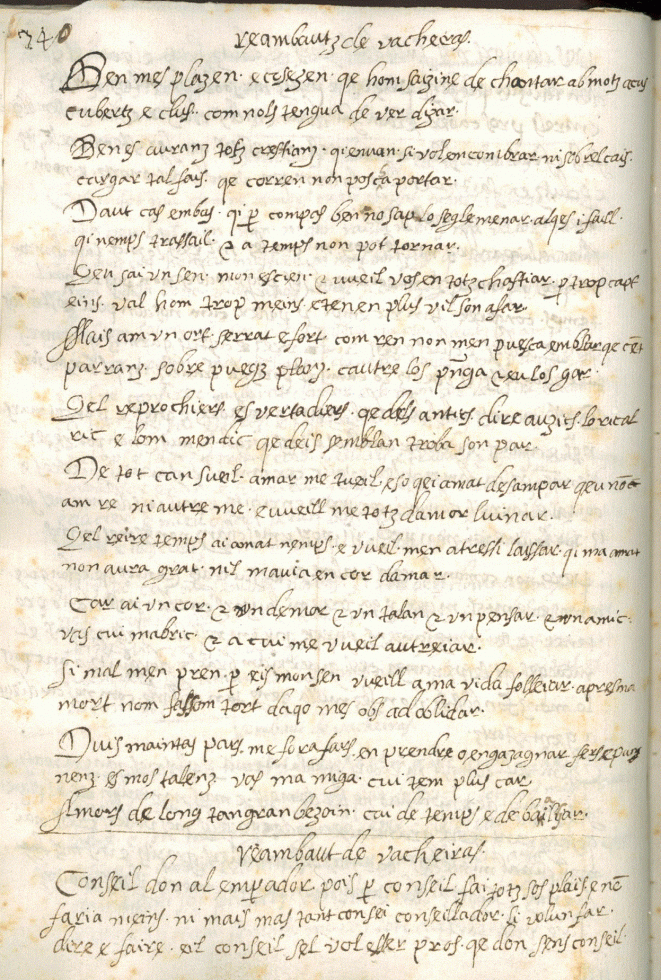 240
reambautz de vacheras.
Ben mes plazen · e cezen · qe hom saizine de chantar ab motz acus
cubertz e clus · com nols tengua de ver dizar·
Ben es auranz totz crestianz · qi enuan · si vol enconbrar ni sobrel cais·
cargar tal fais · qe corren non posca portar·
Daut cas embas · qi per compas ben no sap lo segle menar · alqes i fail·
qi nemps trassail · & a temps non pot tornar·
Qeu sai un sen · mon escien · & vueil vos en totz chastiar · p trop
eins · val hom trop meins · e ten en plus vil son afar·
Mais am un ort · serrat e fort · com ren non men puesca emblar qe cent
parranz · sobre puegz plans · cautre los & eu los gar
Qel reprochiers · es vertadiers · qe dels antics · dire auzics · lo ric al
ric e lom mendic qe deis semblan troba son par·
De tot can sueil · amar me tueil · e so qei amat desampar qeu non
am re ni autre me · e vueill me totz damor luinar·
Qel reire temps ai amat nemps · e vueil men atressi laissar · qi ma amat
non aura grat · nil mavia en cor damar·
Car ai un cor · & un demor & un talan & un pensar · & un amic·
vas cui mabric · & a cui me vueil autreiar·
Si mal men pren · per eis mon sen vueill a ma vida folleiar · apres ma
mort nom fasson tort daqo mes obs ad oblidar·
Puis maintas pars me fora fars · en prendre o en gazagnar
nenz · es mos talenz · vas ma miga · cui tem plus car
Amors de long tan gran bezoin · cui de temps e de baissar·
reambaut de vacheiras·
Conseil don al emperador · pois per conseil fai totz sos plais e non
faria meins · ni mais mas tant con sei conseillador · li volun far·
dire e faire · eil conseil sel vol esser pros · qe don sens conseil·